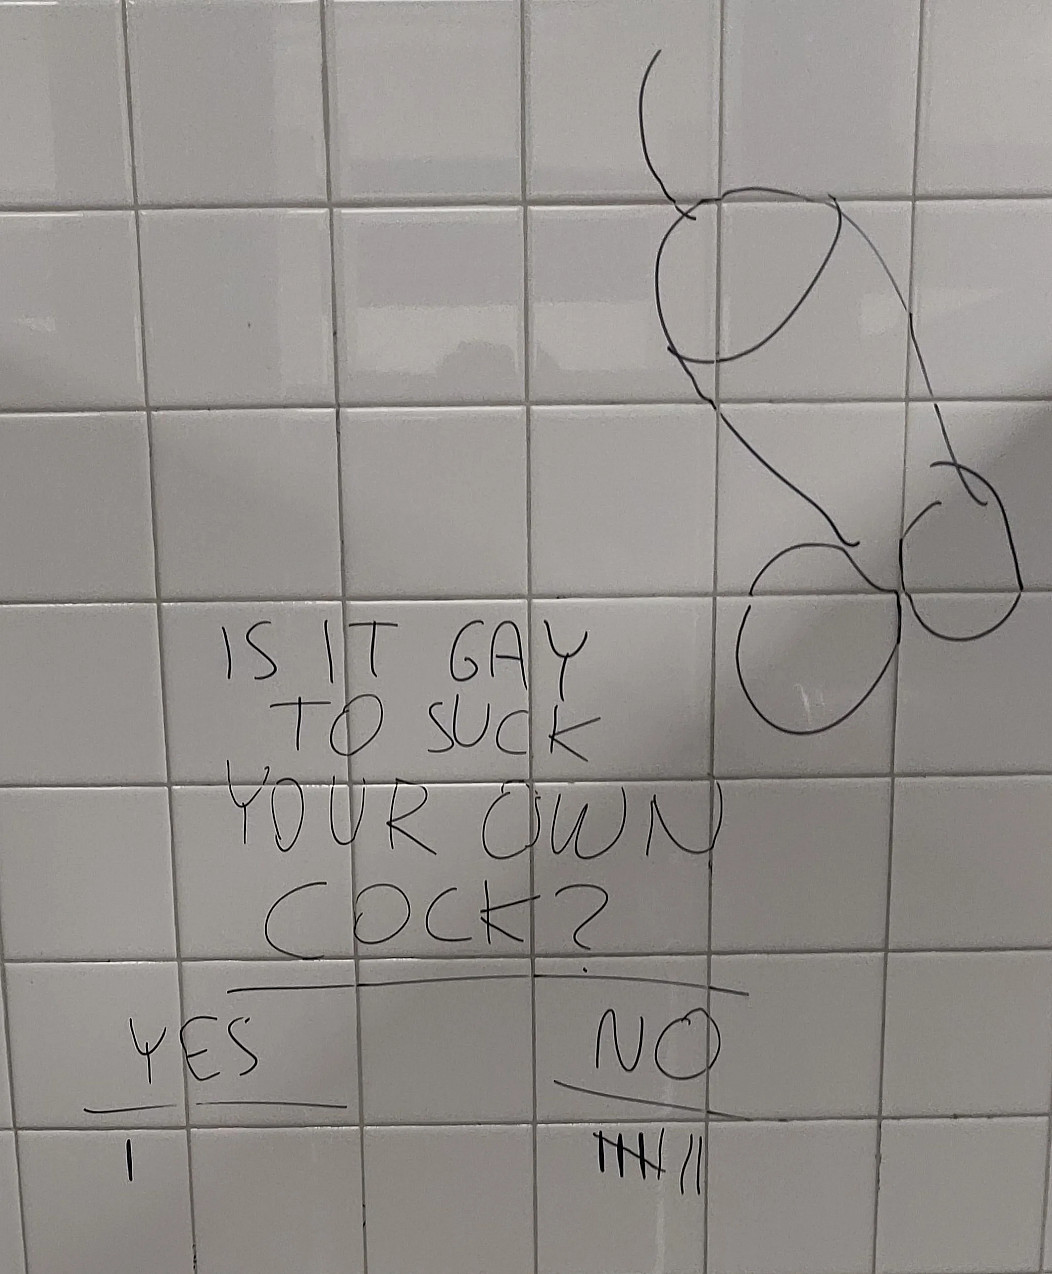 IS IT GAY
TO SUCK
YOUR OWN
COCK?
YES NO